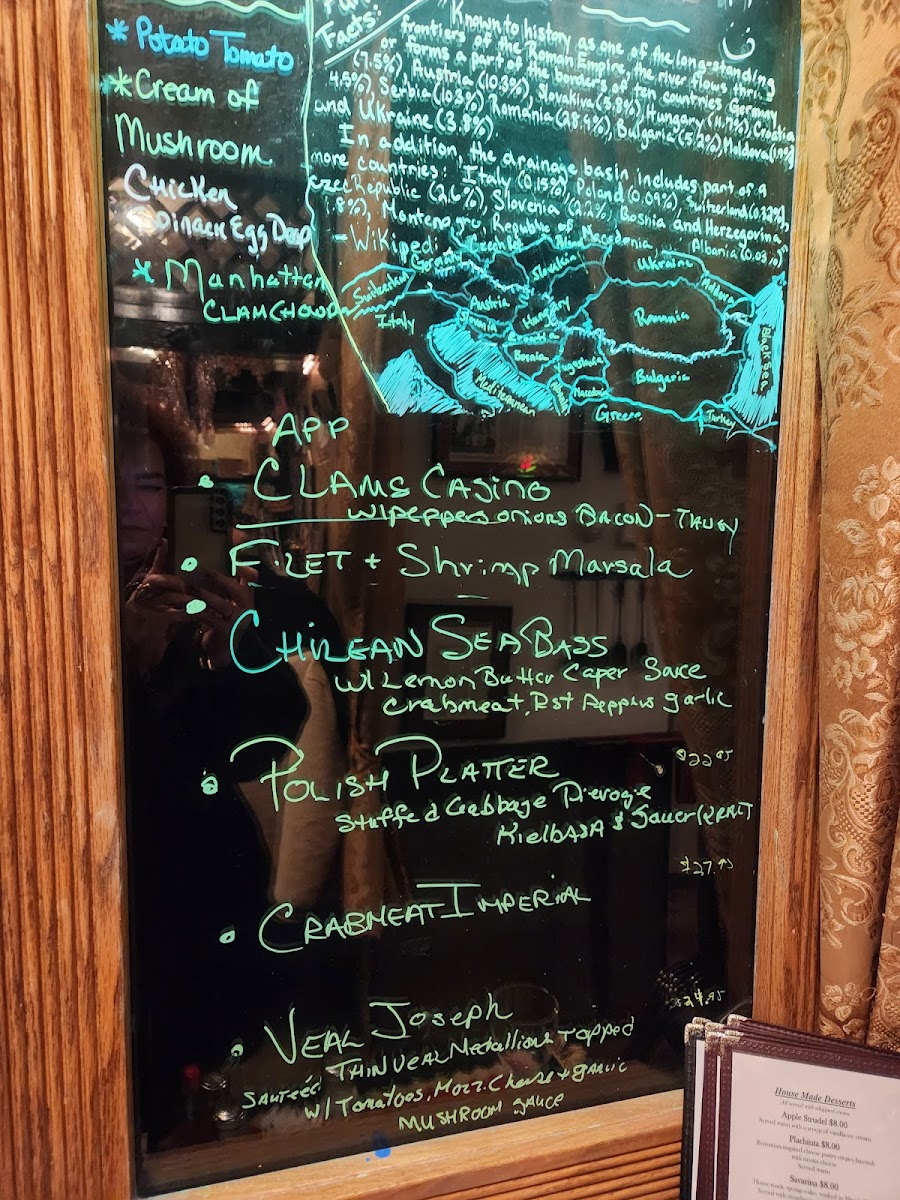 * Potato Tomato
* Cream of
Mushroom
Chicken
Spinach Egg Drop
* Manhattan
CLAM CHOWDA
Fun
Facts:
"Known to history as one of the long-standing
frontiers of the Roman Empire, the river flows thru
or forms a part of the borders of ten countries: Germany
(7.5%), Austria (10.3%), Slovakiva (5.8%), Hungary (11.7%), Croatia
4.5%), Serbia (10.3%), Romania (28.9%), Bulgaria (5.2%) Moldova (1.7%)
and Ukraine (3.8%).
In addition, the drainage basin includes part of 9
more countries: Italy (0.15%), Poland (0.09%), Switzerland (0.32%),
Czec Republic (2.6%), Slovenia (2.2%, Bosnia and Herzegovina
8%), Montenegro, Republic of Macedonia, Albania (0.03%)"
- Wikipedi
Germany
Slovakia
Ukraine
Switzerland
Austria
Hungary
Moldova
Italy
Romania
Croatia
Bosnia
Yugoslavia
Bulgaria
Black Sea
Mediterranean
Macedon
Greece
Turkey
APP
• CLAMS CASINO
W/ PEPPERS ONIONS BACON -
• FILET + Shrimp Marsala
• CHILEAN SEA BASS
W/ Lemon Butter Caper Sauce
Crabmeat, Rst Peppers garlic
$22.95
• POLISH PLATTER
Stuffed Cabbage Pierogie
Kielbasa & SauerKRAUT
$27.95
• CRABMEAT IMPERIAL
$24.95
• VEAL Joseph
Sauteéd THIN VEAL Medallions Topped
W/ Tomatoes, Mozz. Cheese + garlic
MUSHROOM sauce
House Made Desserts
All served with whipped cream
Apple Strudel $8.00
Served warm with a scoop of vanilla ice cream
Plachinta $8.00
Romanian inspired cheese pastry crepes layered
with ricotta cheese
Served warm
Savarina $8.00